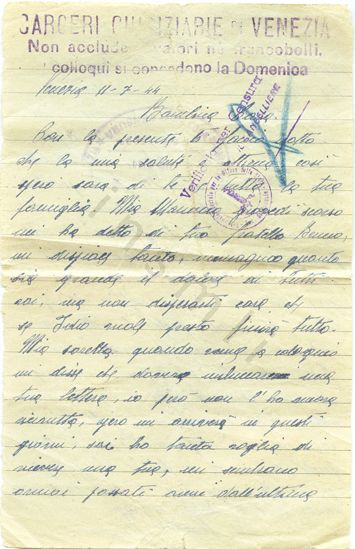 CARCERI GIUDIZIARIE DI VENEZIA
Non accludere valori né francobolli.
I colloqui si concedono la Domenica
Venezia 11-7-44
Bambina
Con la presente ti faccio
che la mia salute è ottima così
spero sarà di te e tutta la tua
famiglia. Mia Mamma giovedì scorso
mi ha detto di tuo fratello
mi dispiace tanto, immagino quanto
sia grande il dolore di tutti
voi, ma non disperarti cara che
se Iddio vuole presto finirà tutto.
Mia sorella quando venne a colloquio
mi disse che doveva una
tua lettera, io però non l'ho ancora
ricevuta, spero mi arriverà in questi
giorni, sai ho tanta voglia di
una tua, mi sembrano
ormai passati anni dall'ultima
Verificato per censura